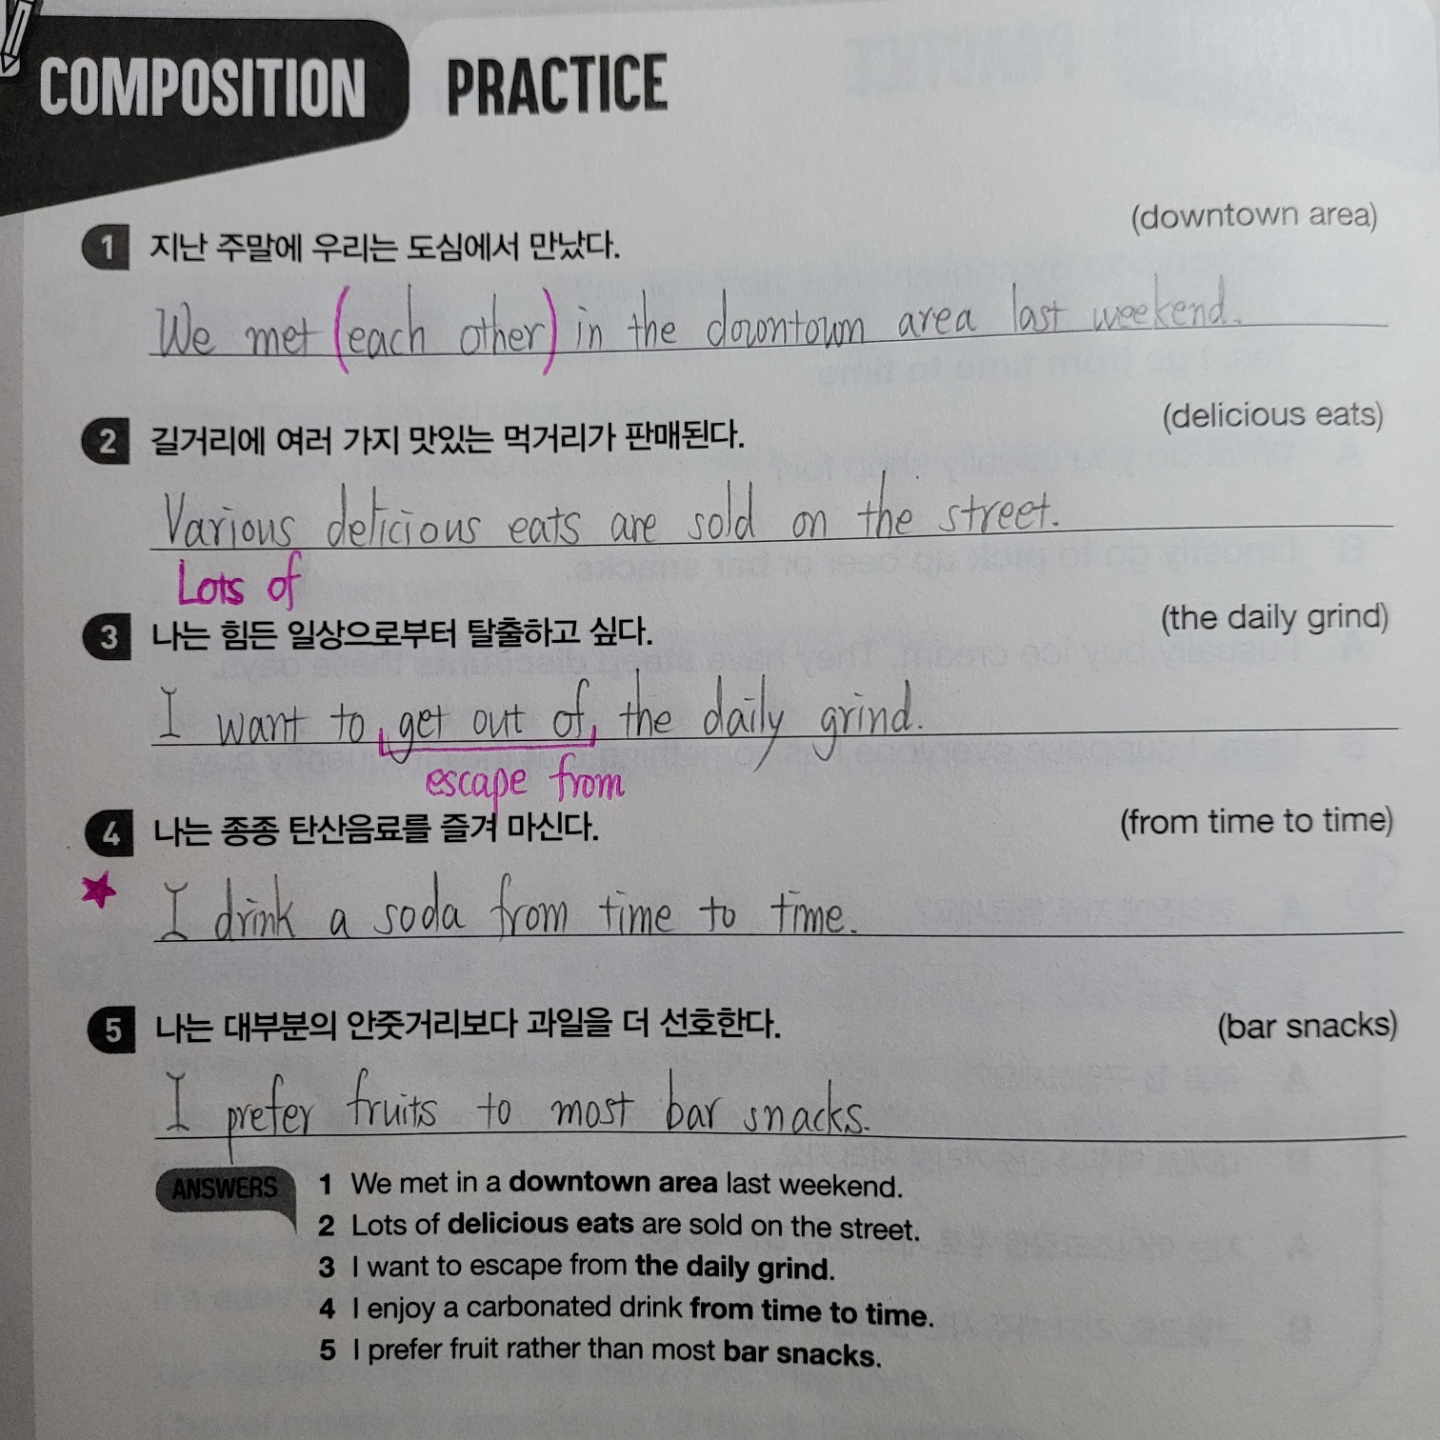 COMPOSITION PRACTICE
1 지난 주말에 우리는 도심에서 만났다. (downtown area)
We met (each other) in the downtown area last weekend.
2 길거리에 여러 가지 맛있는 먹거리가 판매된다. (delicious eats)
Various delicious eats are sold on the street.
Lots of
3 나는 힘든 일상으로부터 탈출하고 싶다. (the daily grind)
I want to get out of the daily grind.
escape from
4 나는 종종 탄산음료를 즐겨 마신다. (from time to time)
I drink a soda from time to time.
5 나는 대부분의 안줏거리보다 과일을 더 선호한다. (bar snacks)
I prefer fruits to most bar snacks.
ANSWERS
1 We met in a downtown area last weekend.
2 Lots of delicious eats are sold on the street.
3 I want to escape from the daily grind.
4 I enjoy a carbonated drink from time to time.
5 I prefer fruit rather than most bar snacks.